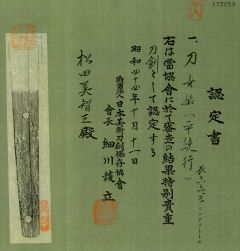 172053
認定書
一、刀 無銘(一平統行)
右は當協會に於て審査の結果特別貴重
刀劍として認定する
昭和四十四年十月十一日
財團法人日本美術刀劍保存協會
會長 細川護立
松田美智三殿